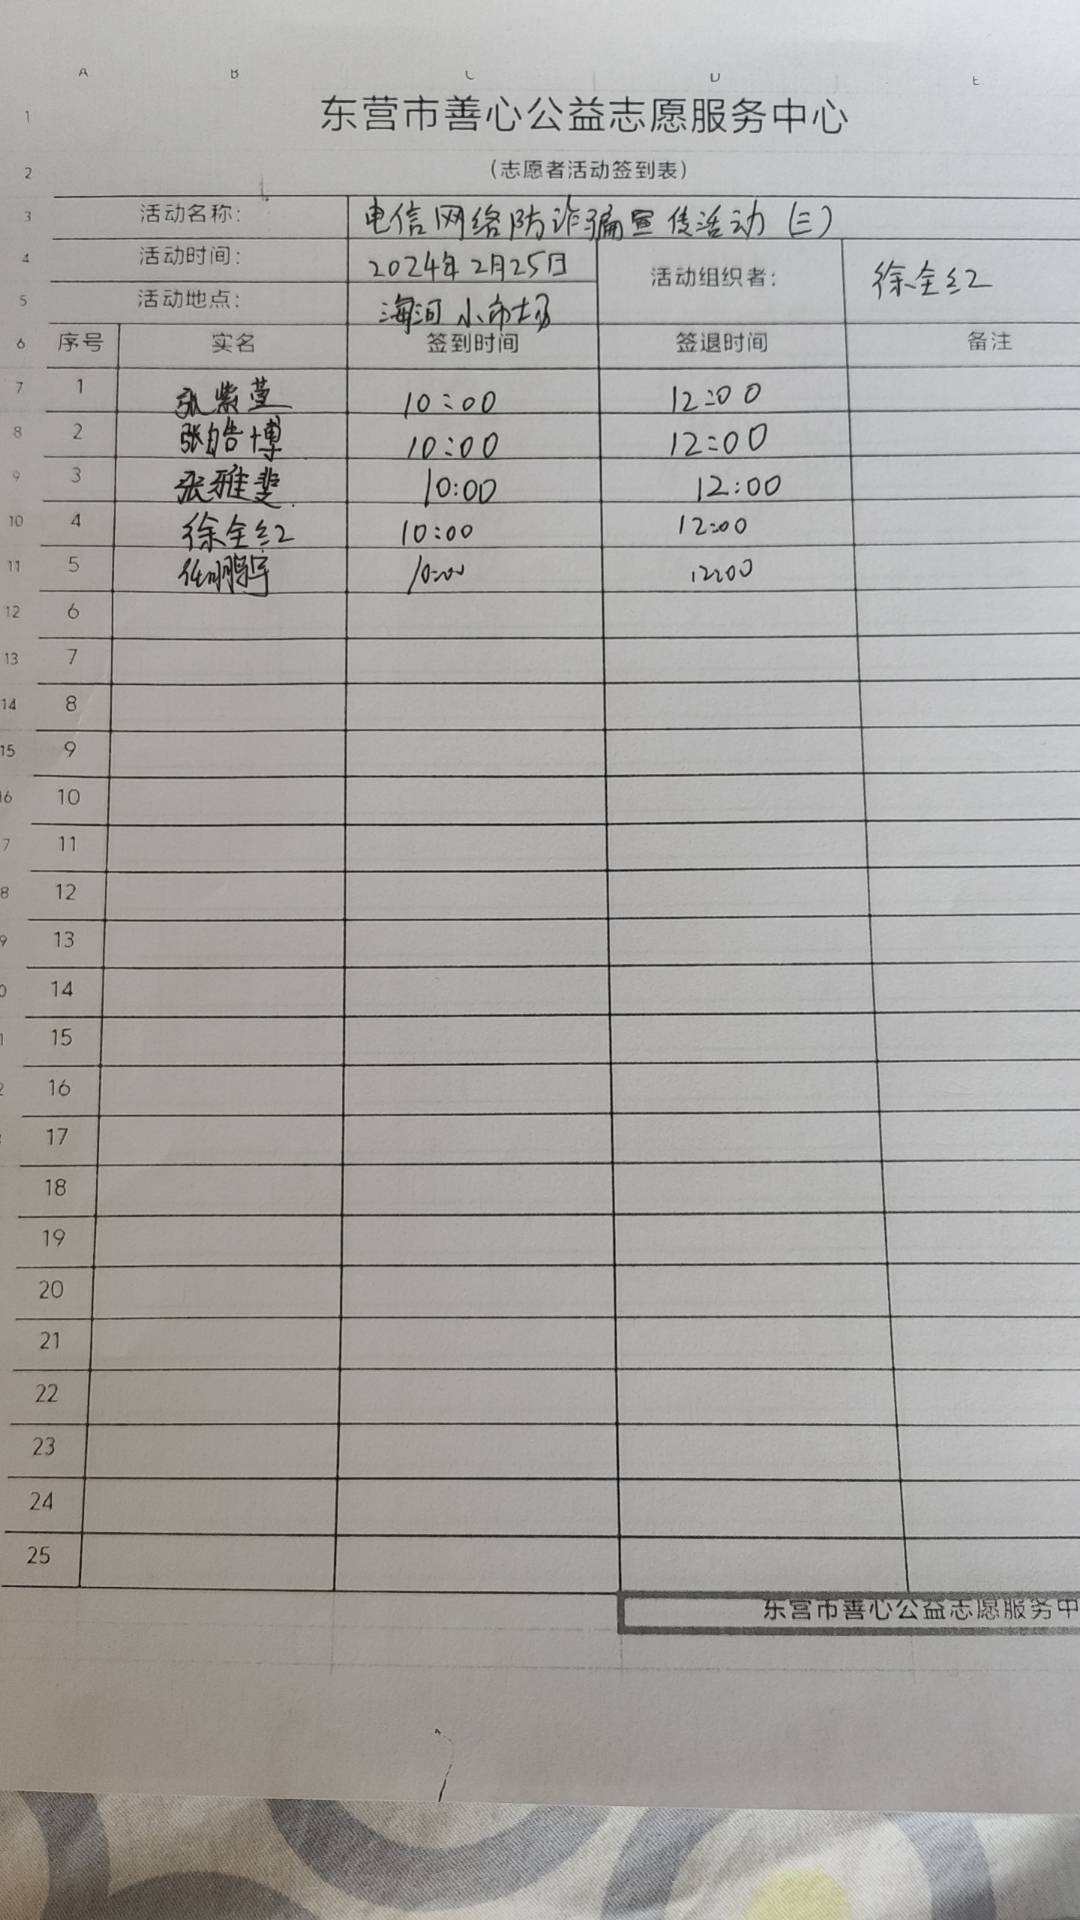 A B C D E
1 东营市善心公益志愿服务中心
2 (志愿者活动签到表)
3 活动名称: 电信网络防诈骗宣传活动(三)
4 活动时间: 2024年2月25日 活动组织者: 徐全红
5 活动地点: 海河小市场
6 序号 实名 签到时间 签退时间 备注
7 1 张紫萱 10:00 12:00
8 2 张皓博 10:00 12:00
9 3 张雅斐 10:00 12:00
10 4 徐全红 10:00 12:00
11 5 任鹏宇 10:00 12:00
12 6
13 7
14 8
15 9
16 10
7 11
8 12
9 13
0 14
1 15
2 16
17
18
19
20
21
22
23
24
25
东营市善心公益志愿服务中